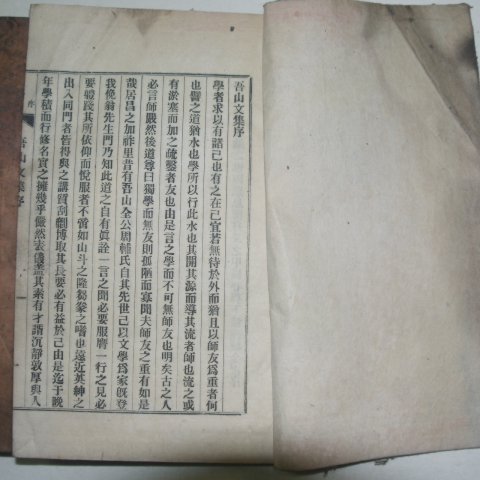 吾山文集序
學者求以有諸己也有之在己宜若無待於外而猶且以師友爲重者何
也譬之道猶水也學所以行此水也其開其源而導其流者師也流之或
有淤塞而加之疏鑿者友也由是言之學而不可無師友也明矣古之人
必言師嚴然後道尊曰獨學而無友則孤陋而寡聞夫師友之重有如是
哉居昌之加祚里昔有吾山全公周 氏自其先世已以文學爲家旣登
我俛翁先生門乃知此道之自有眞詮一言之聞必要服膺一行之見必
要 踐其所依仰而悅服者不啻如山斗之隆芻豢之嗜也遠近英紳之
出入同門者皆得與之講質刮 博取其長要必有益於己由是迄于晩
年學積而行修名實之擁幾乎儼然表儀盖其素有才諝沉靜敦厚與人
序
吾山文集序